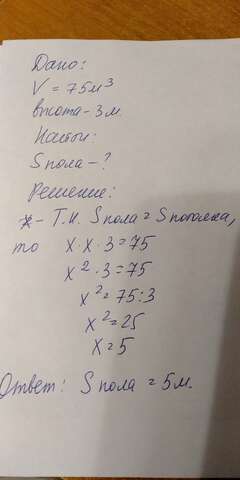 Дано:
V = 75 м³
высота - 3 м.
Найти:
S пола - ?
Решение:
Т.к. S пола = S потолка,
то x · x · 3 = 75
x² · 3 = 75
x² = 75 : 3
x² = 25
x = 5
Ответ: S пола = 5 м.